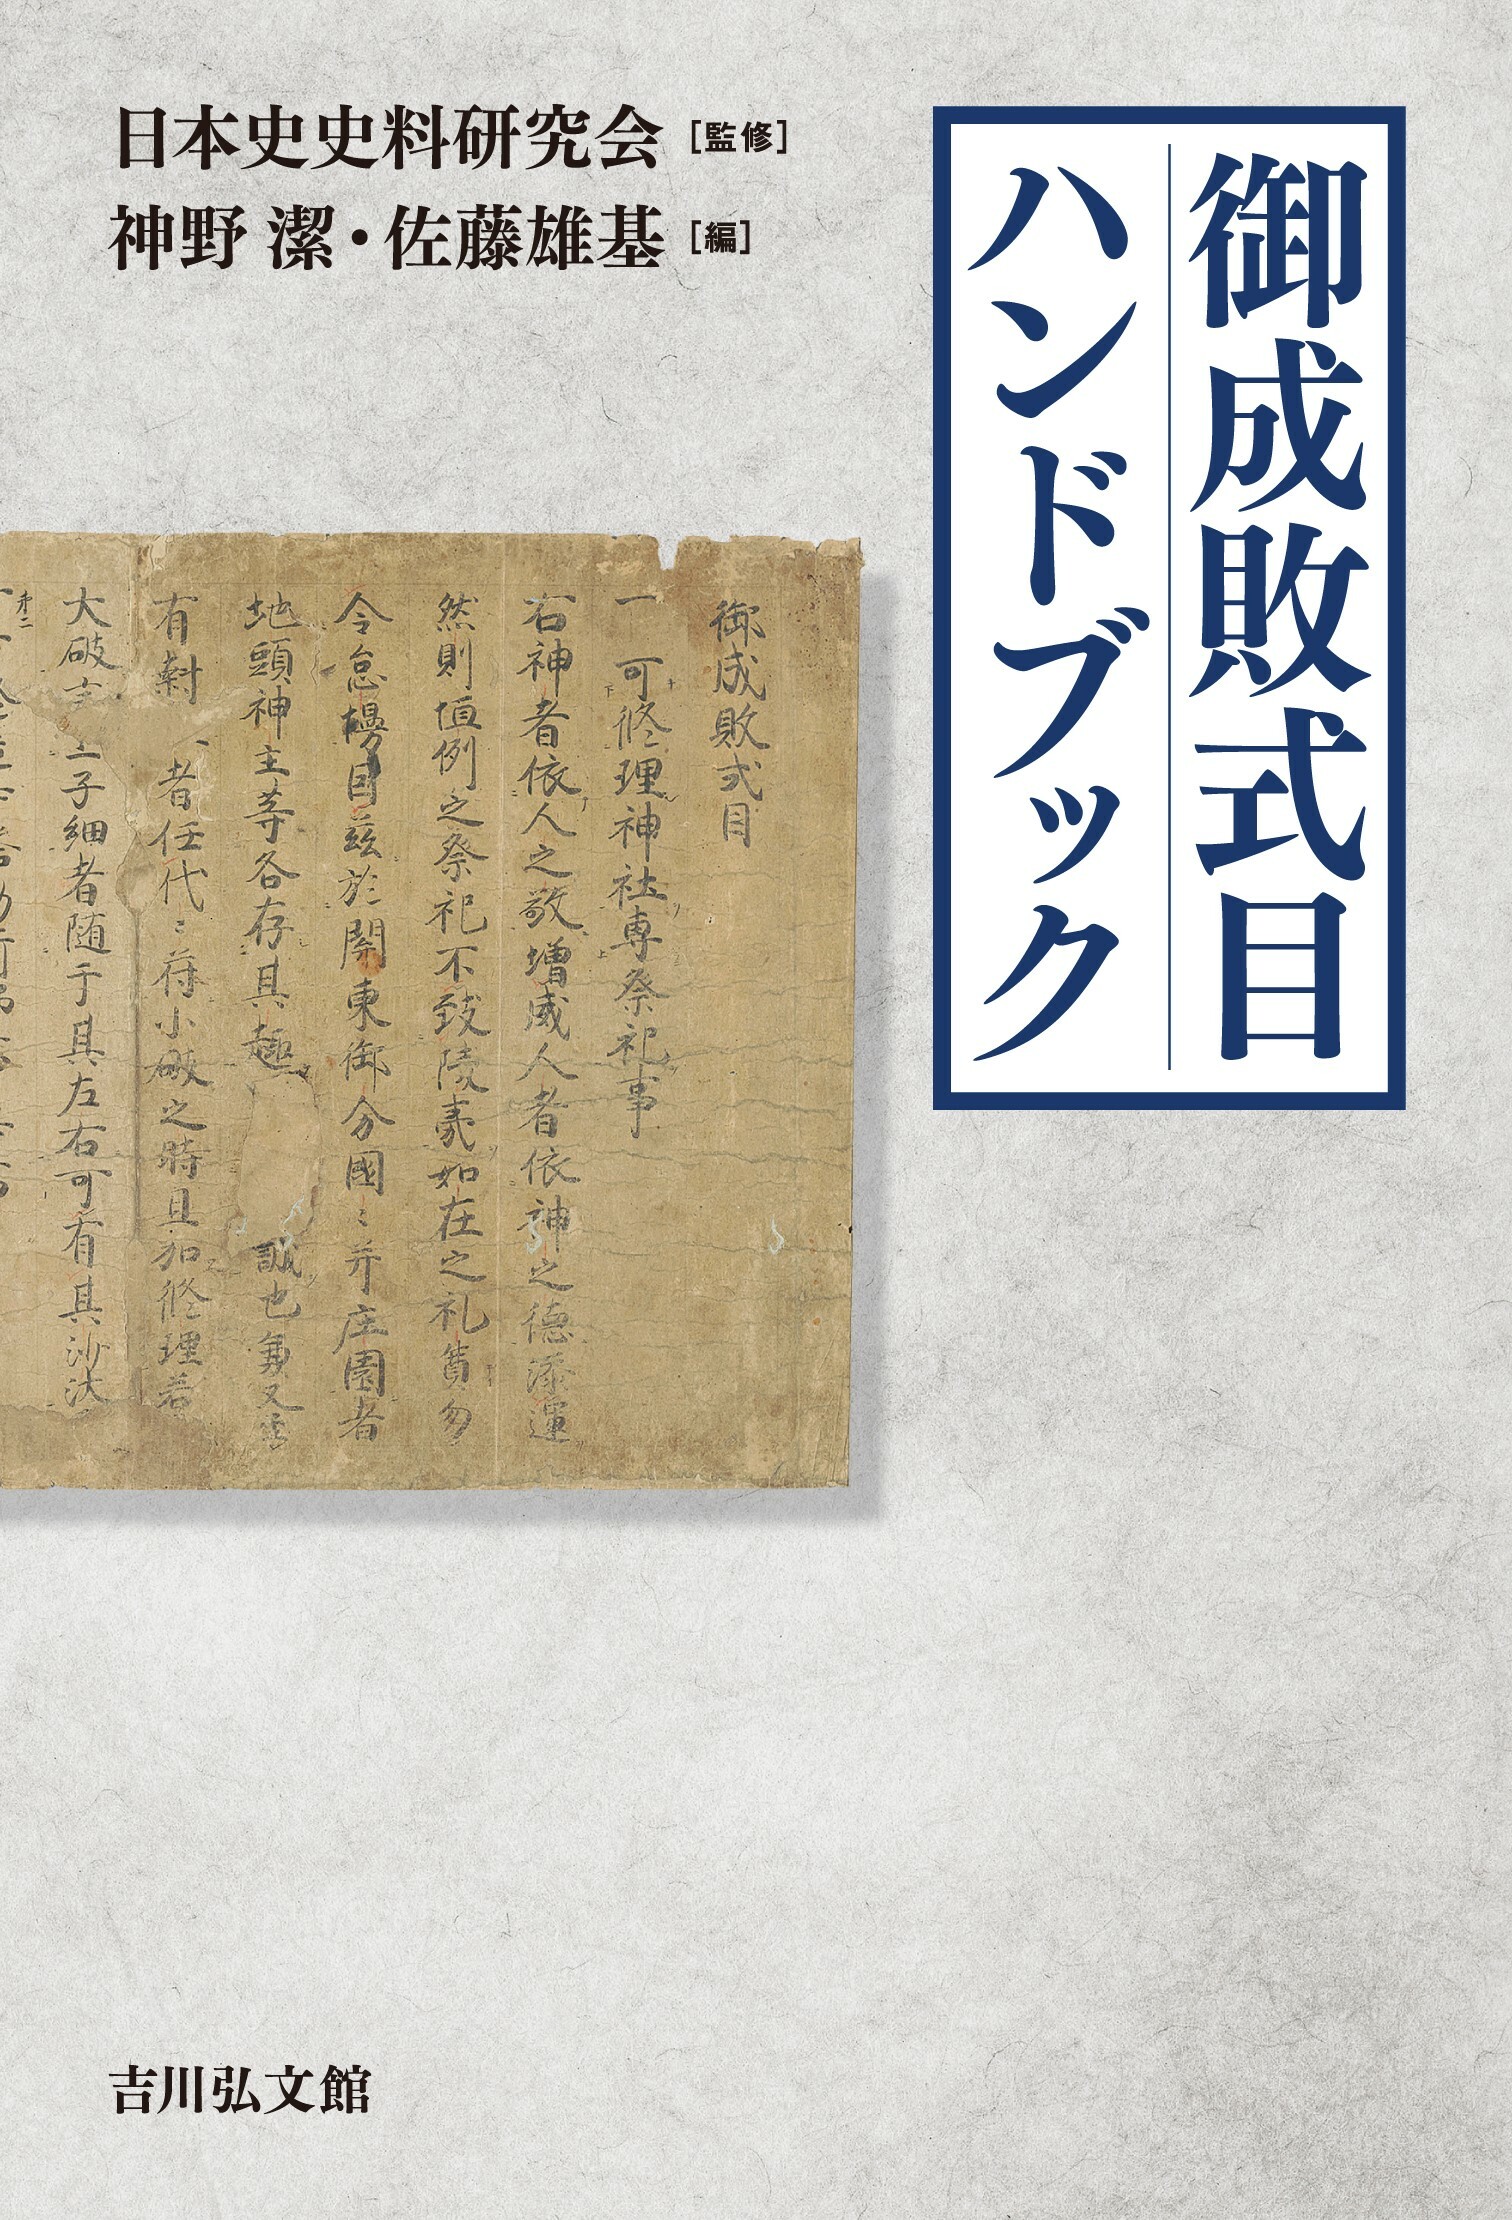 御成敗式目
ハンドブック
日本史史料研究会［監修］
神野 潔・佐藤雄基［編］
御成敗式目
一 可修理神社専祭祀事
右神者依人之敬増威人者依神之徳添運
然則恒例之祭祀不致陵夷如在之礼奠勿
令怠慢因茲於関東御分國〻并庄園者
地頭神主等各存其趣 誠也兼又
有封 者任代〻符小破之時且加修理若
大破 子細者随于其左右可有其沙汰
吉川弘文館